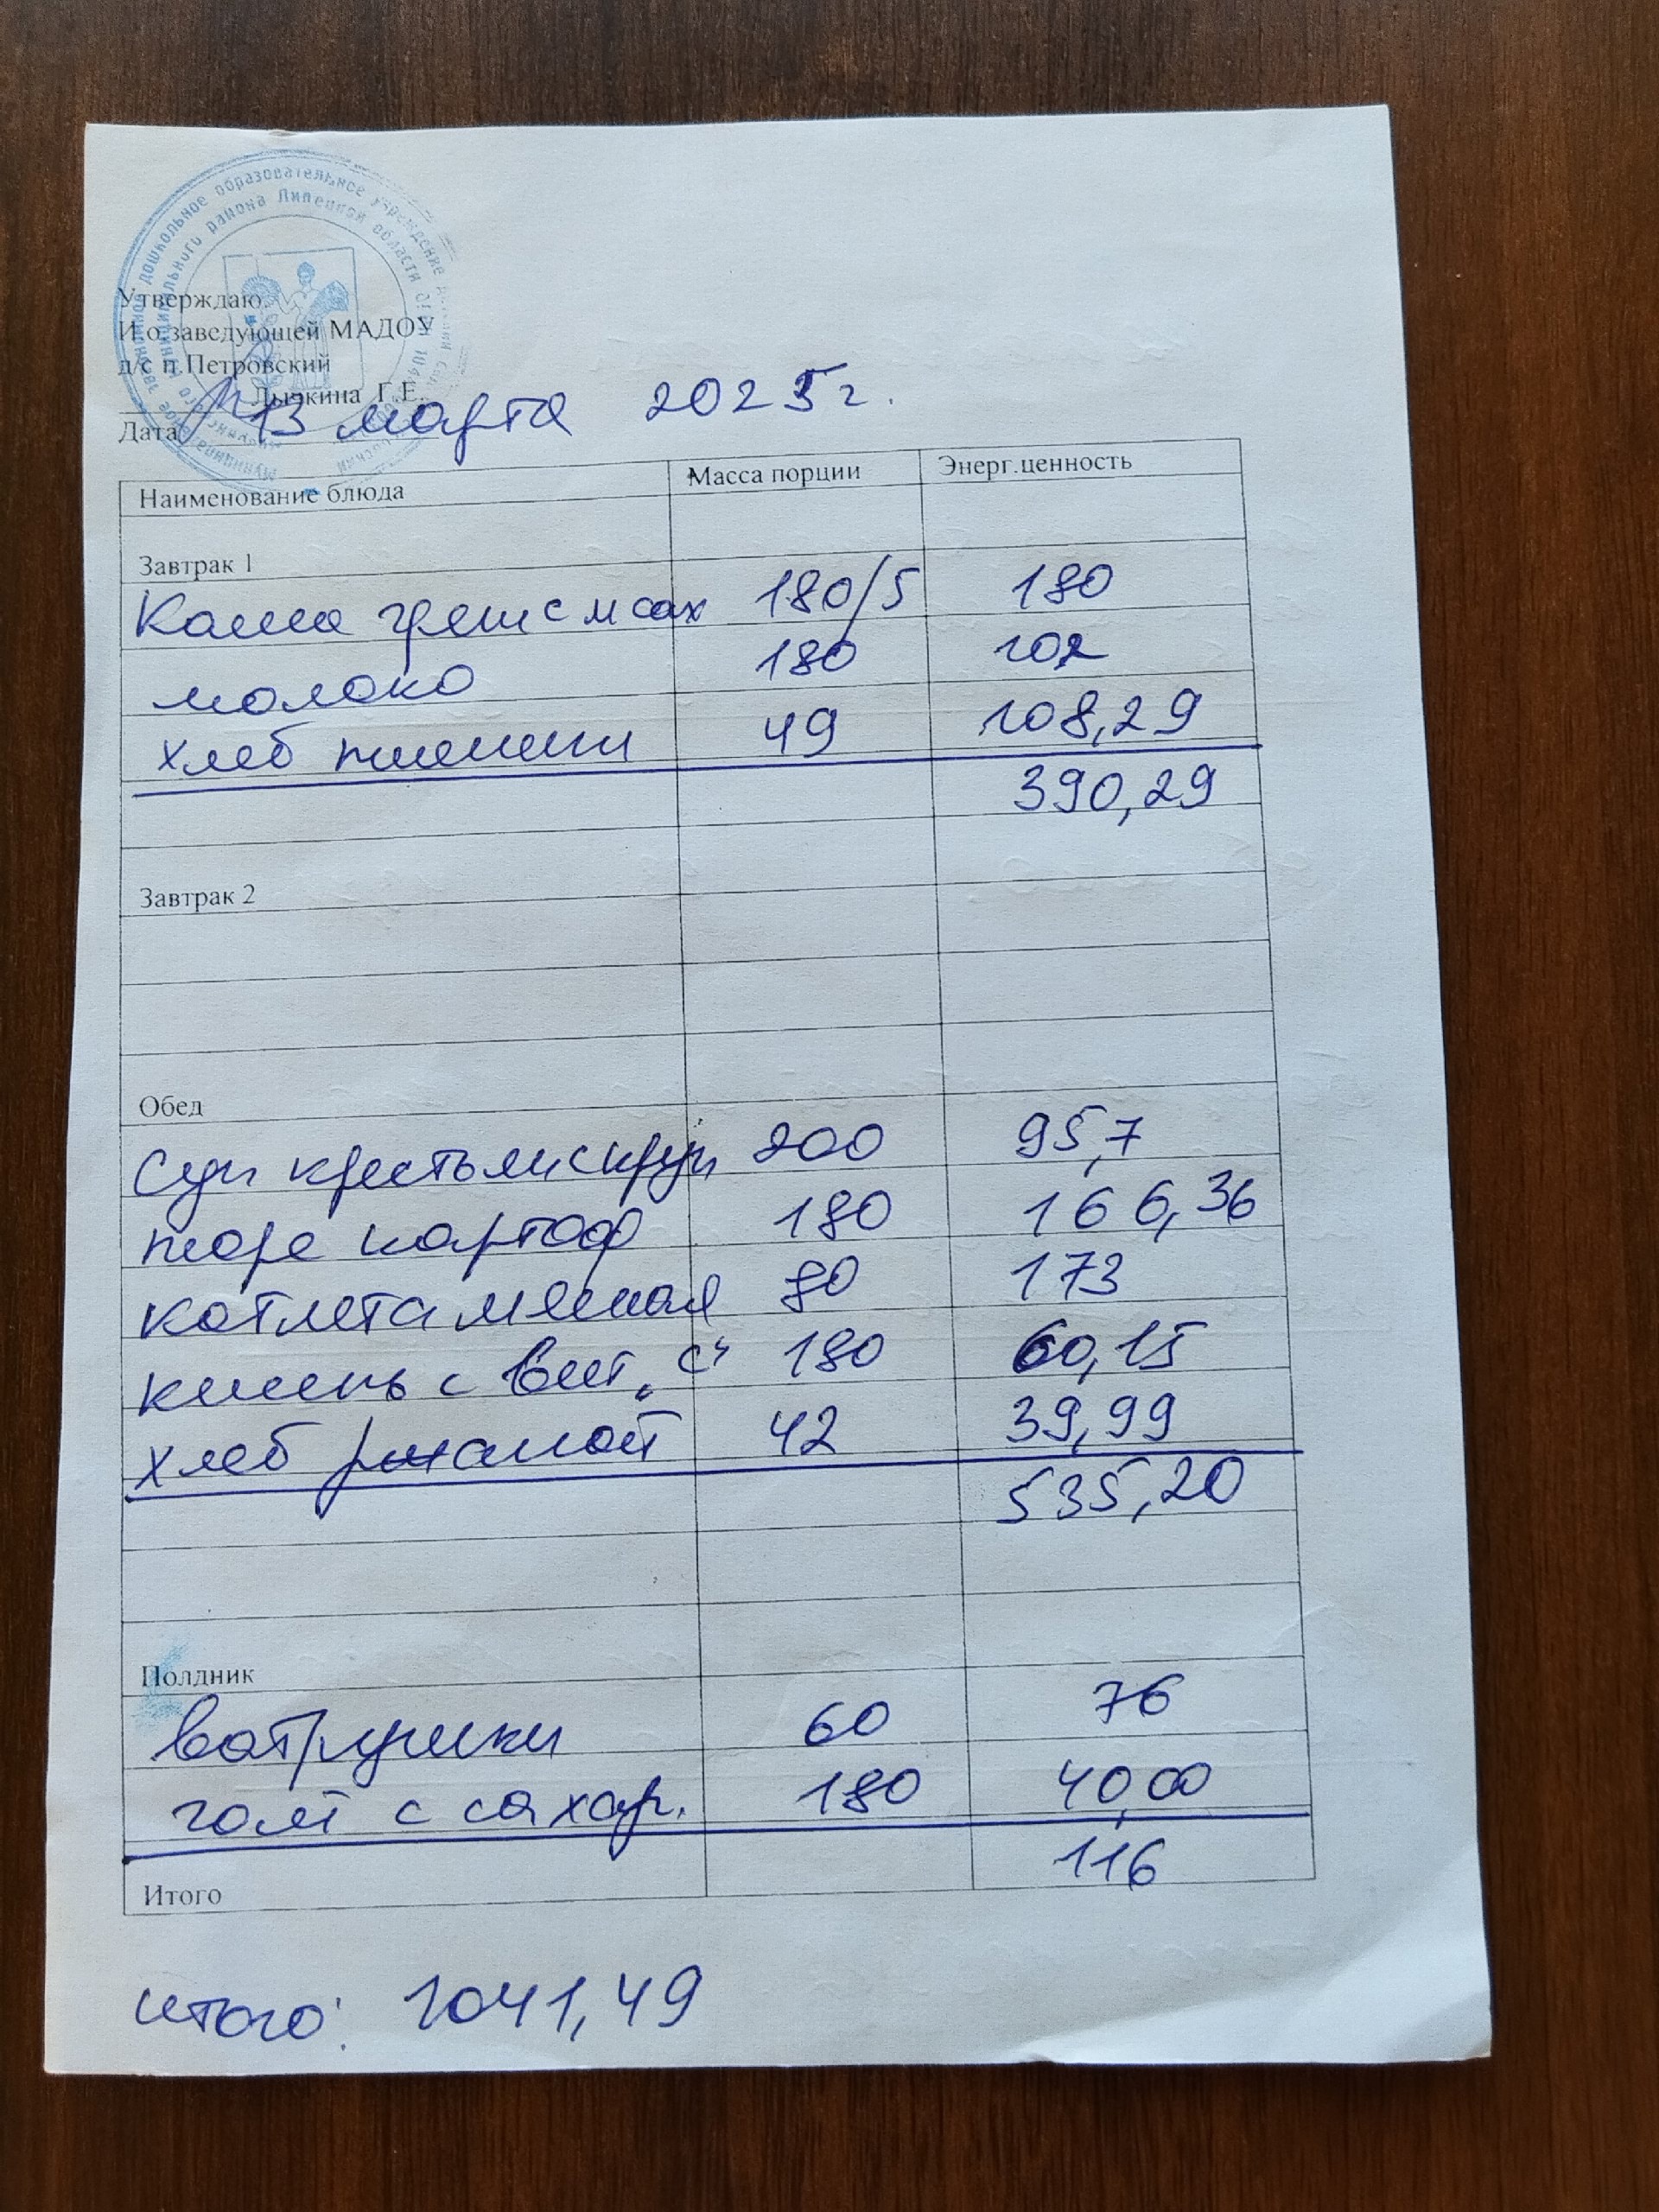 Утверждаю.
И.о.заведующей МАДОУ
д/с п.Петровский
Лычкина Г.Е.
Дата 13 марта 2025г.
Наименование блюда Масса порции Энерг.ценность
Завтрак 1
Каша греш с м сах 180/5 180
молоко 180 102
хлеб пшенич 49 108,29
390,29
Завтрак 2
Обед
Суп крестьянс круп 200 95,7
пюре картоф 180 166,36
котлета мясная 80 173
кисель с вит „С" 180 60,15
хлеб ржаной 42 39,99
535,20
Полдник
ватрушки 60 76
чай с сахар. 180 40,00
116
Итого
итого: 1041,49